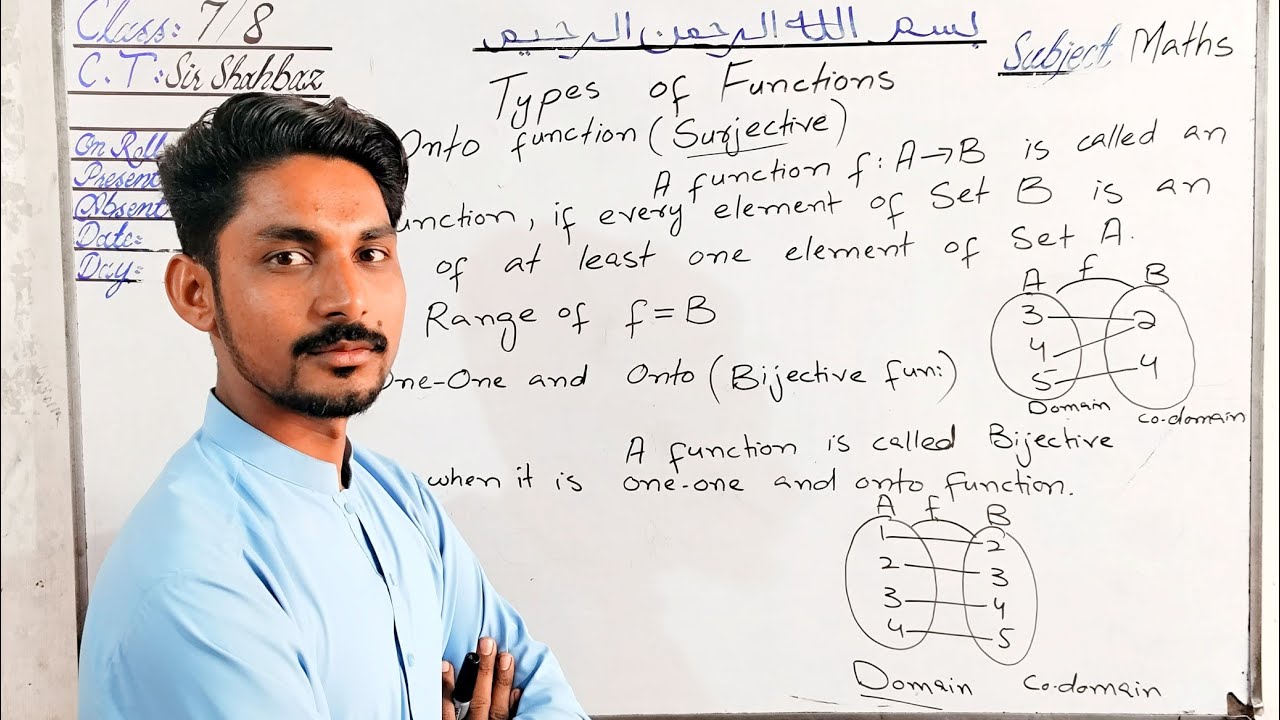 Class: 7/8
C.T: Sir Shahbaz
On Roll
Present
Absent
Date:
Day:
بسم الله الرحمن الرحيم
Subject Maths
Types of Functions
Onto function (Surjective)
A function f: A→B is called an
unction, if every element of Set B is an
of at least one element of Set A.
Range of f = B
A f B
3 2
4 4
5
Domain Co-domain
One-One and Onto (Bijective fun:)
A function is called Bijective
when it is one-one and onto function.
A f B
1 2
2 3
3 4
4 5
Domain Co-domain